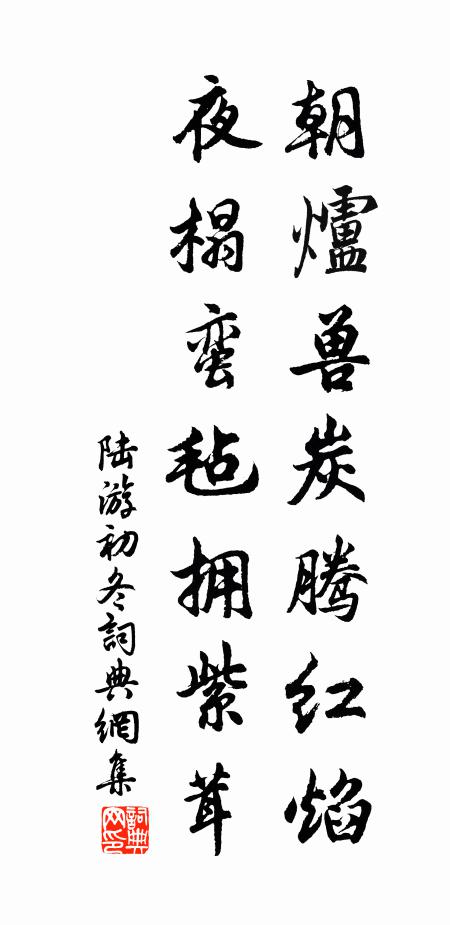 朝爐兽炭腾红焰
夜榻蛮毡拥紫茸
陆游初冬詞典網集
詞典
网印